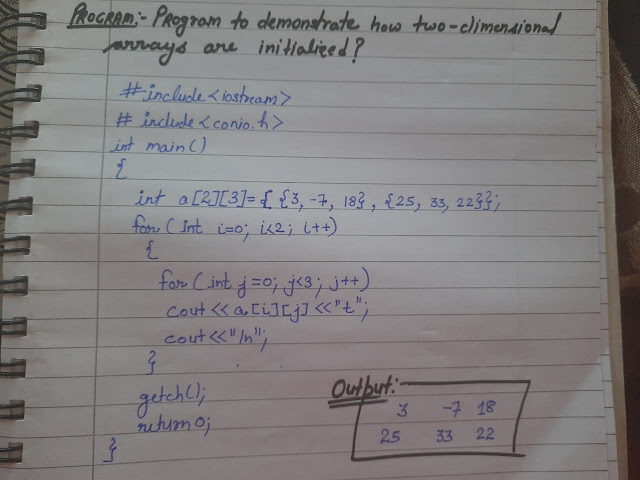 PROGRAM:- Program to demonstrate how two-dimensional
arrays are initialized?
# include<iostream>
# include<conio.h>
int main()
{
int a[2][3]= { {3, -7, 18} , {25, 33, 22}};
for( int i=0; i<2; i++)
{
for( int j=0; j<3; j++)
cout << a[i][j] <<"t";
cout <<"/n";
}
getch();
return 0;
}
Output:-
3 -7 18
25 33 22